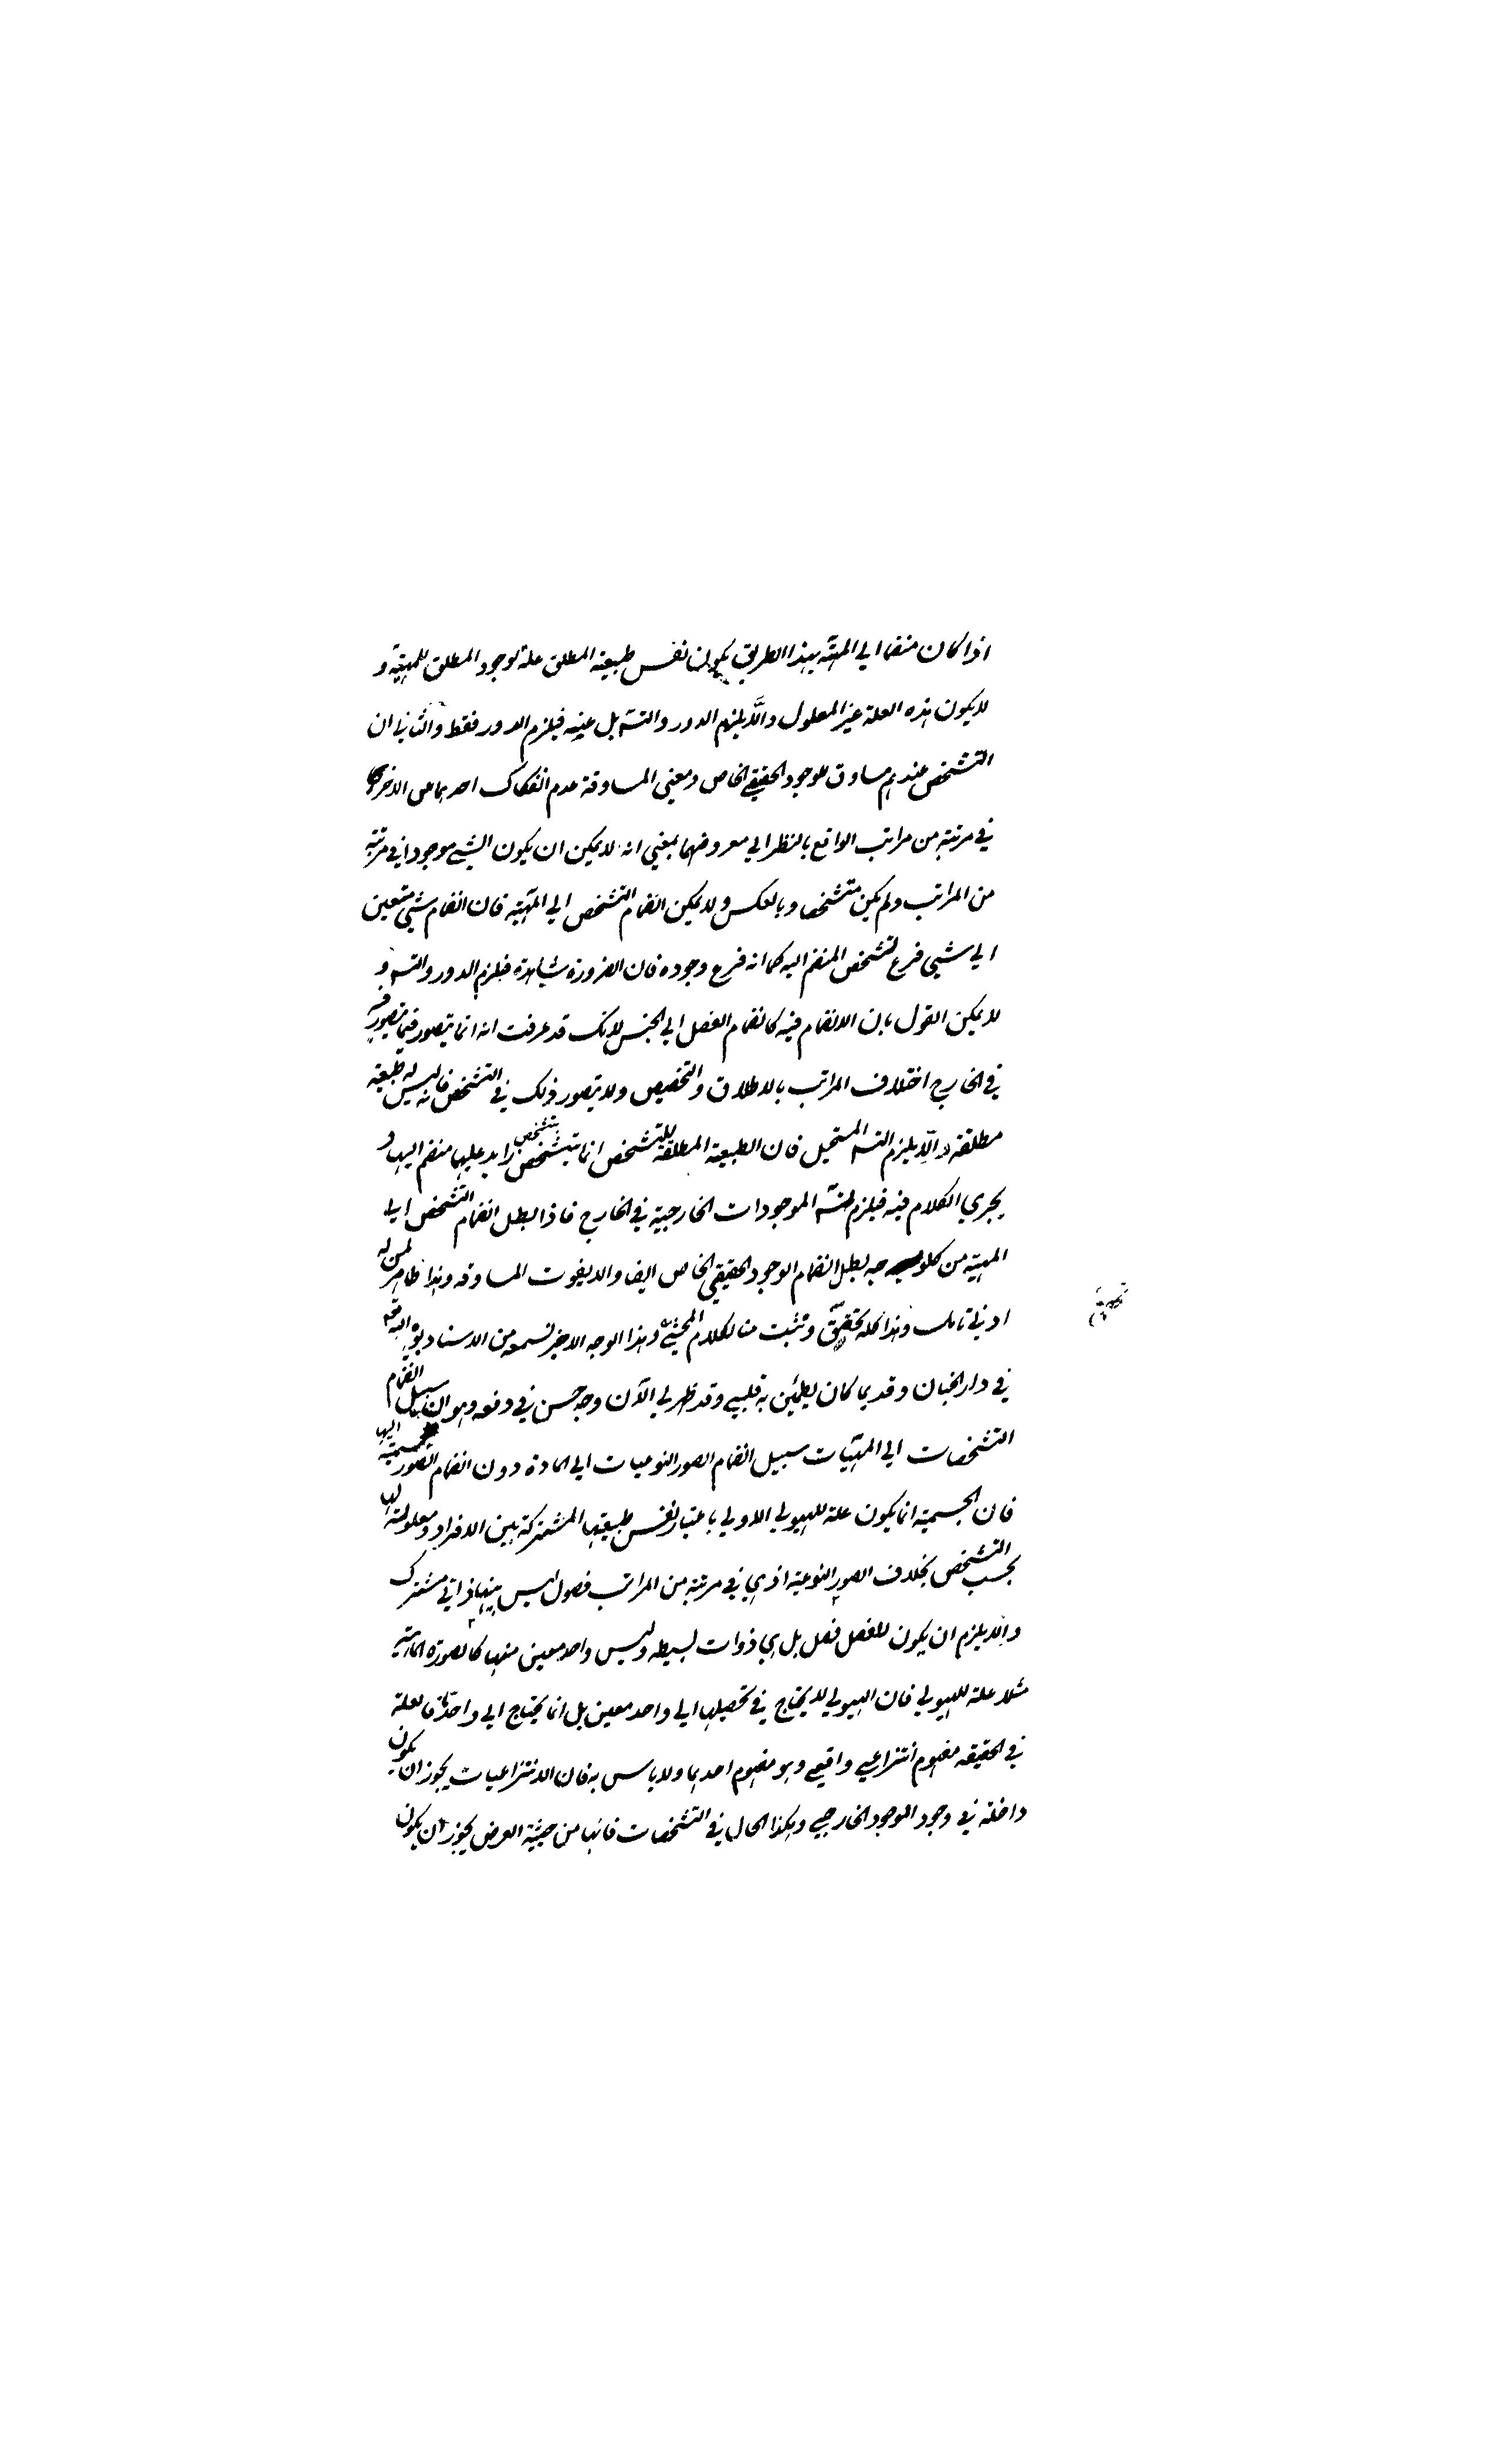 اذا كان منضما الي المهية بهذا الطريق يكون نفس طبيعة المطلق علة لوجود المطلق للمهية و
لا يكون هذه العلة غير المعلول والا يلزم الدور والتسه بل عينه فيلزم الدور فقط والثاني ان
التشخص عندهم مساوق للوجود الحقيقي الخاص ومعني المساوقة عدم انفكاك احدهما عن الاخر
في مرتبة من مراتب الواقع بالنظر الي معروضهما بمعني انه لا يمكن ان يكون الشيء موجودا في مرتبة
من المراتب ولم يكن متشخصا وبالعكس ولا يمكن انضمام التشخص الي المهية فان انضمام شيء متعين
الي شيء فرع تشخص المنضم اليه كما انه فرع وجوده فان الضرورة شاهدة فيلزم الدور والتسه و
لا يمكن القول بان الانضمام فيه كانضمام الفصل الي الجنس لانك قد عرفت انه انما يتصور فيما يتصور فيه
في الخارج اختلاف المراتب بالاطلاق والتخصيص ولا يتصور ذلك في التشخص فانه ليس له طبيعة
مطلقة والا يلزم التسه المستحيل فان الطبيعة المطلقة للتشخص انما تتشخص بتشخص زايد عليها منضم اليها و
يجري الكلام فيه فيلزم تسه الموجودات الخارجية في الخارج فاذا بطل انضمام التشخص الي
المهية من كل وجه بطل انضمام الوجود الحقيقي الخاص ايضا والا يفوت المساوقة وهذا ظاهر لمن له
ادني تامل وهذا كله تحقيق وتثبت منا لكلام المحشي وهذا الوجه الاخير نسمعه من الاستاد
في دار الجنان وقديما كان يطمئن به قلبي وقد ظهر لي الآن وجه حسن في دفعه وهو ان سبيل انضمام
التشخصات الي المهيات سبيل انضمام الصور النوعيات الي المادة دون انضمام الصور الجسمية اليها
فان الجسمية انما يكون علة للهيولي الاولي باعتبار نفس طبيعتها المشتركة بين الافراد ومعلولة لها
بحسب التشخص بخلاف الصور النوعية اذ هي في مرتبة من المراتب فصول ليس بينها ذاتي مشترك
والا يلزم ان يكون للفصل فصل بل هي ذوات بسيطه وليس واحد معين منها كالصورة المائية
مثلا علة للهيولي فان الهيولي لا يحتاج في تحصيلها الي واحد معين بل انما يحتاج الي واحد ما فالعلة
في الحقيقة مفهوم انتزاعي واقعي وهو مفهوم احدهما ولا باس به فان الانتزاعيات يجوز ان يكون
داخلة في وجود الموجود الخارجي وهكذا الحال في التشخصات فانها من حيثية العرض يجوز ان يكون